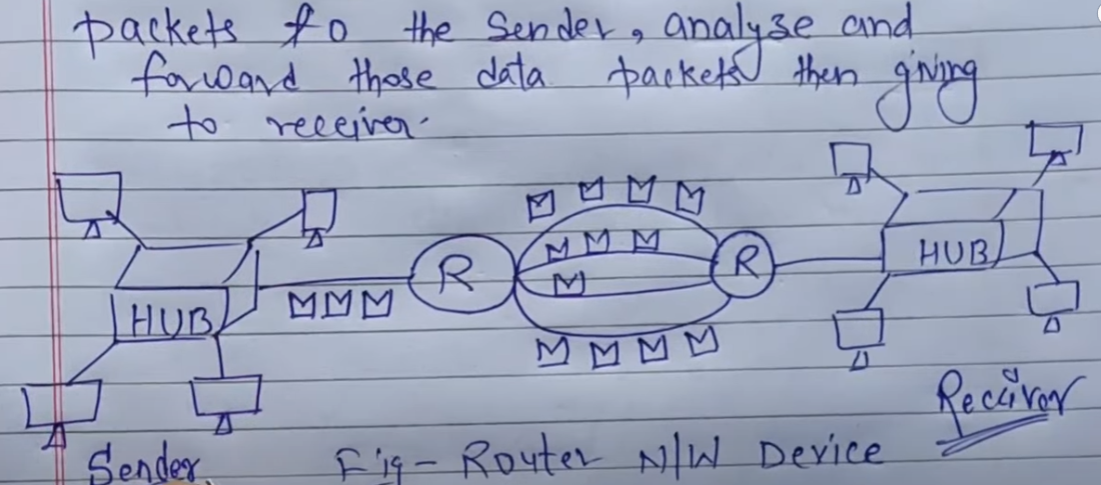 packets to the Sender, analyse and
forward those data packets then giving
to receiver.
R
R
HUB
HUB
Receiver
Sender.
Fig - Router N/W Device